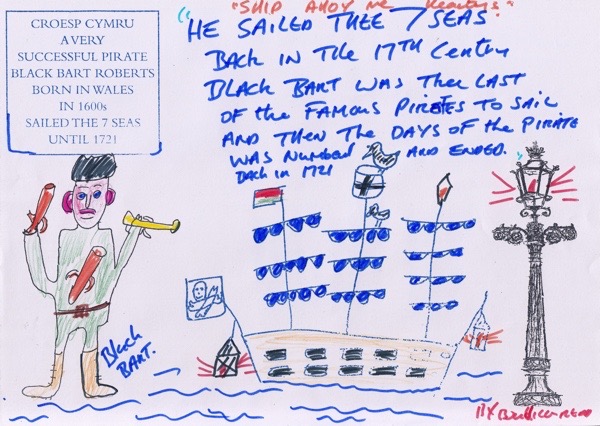 "SHIP AHOY me Hearty's"
CROESP CYMRU
A VERY
SUCCESSFUL PIRATE
BLACK BART ROBERTS
BORN IN WALES
IN 1600s
SAILED THE 7 SEAS
UNTIL 1721
"HE SAILED THEE 7 SEAS
BACK IN THE 17TH Centry
BLACK BART WAS Thee LAST
OF the FAMOUS PIRATES TO SAIL
AND Then The DAYS OF the PIRATE
WAS NUMBERd AND ENDED.
Back in 1721
Black
BART.